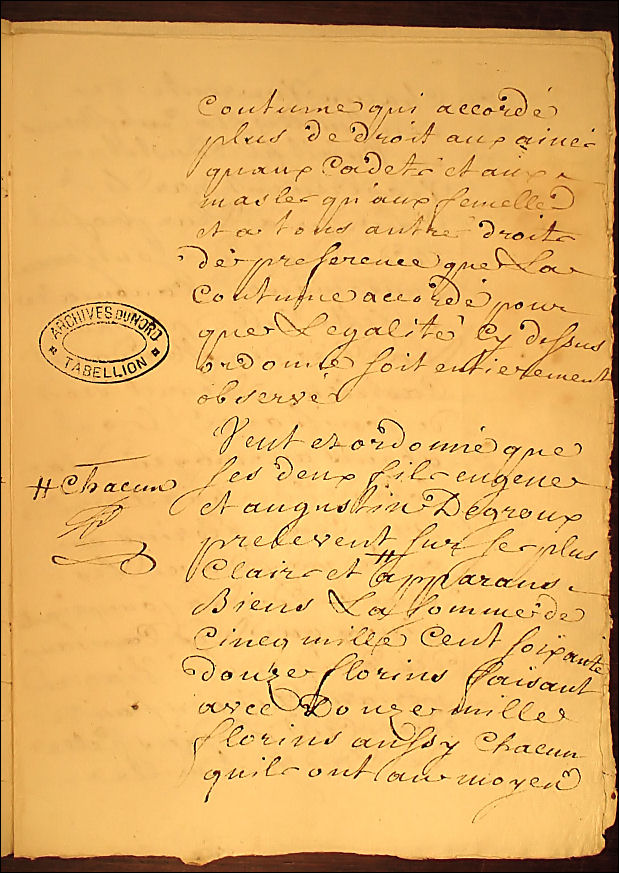 Coutume qui accordé
plus de droit aux ainés
quaux Cadets et aux
masles qu'aux femelles
et a tous autre droits
de preference que La
Coutume accordé pour
que Legalité Cy dessus
ordonné soit entierement
observé
Veut et ordonne que
ses deux fils eugene
et augustin Degroux
prelevent sur ses plus
Clairs et # apparans
Biens La somme de
Cincq mille Cent soixante
douze florins faisant
avec Douze mille
florins aussy Chacun
quils ont au moyen
# Chacun
ARCHIVES DU NORD
TABELLION